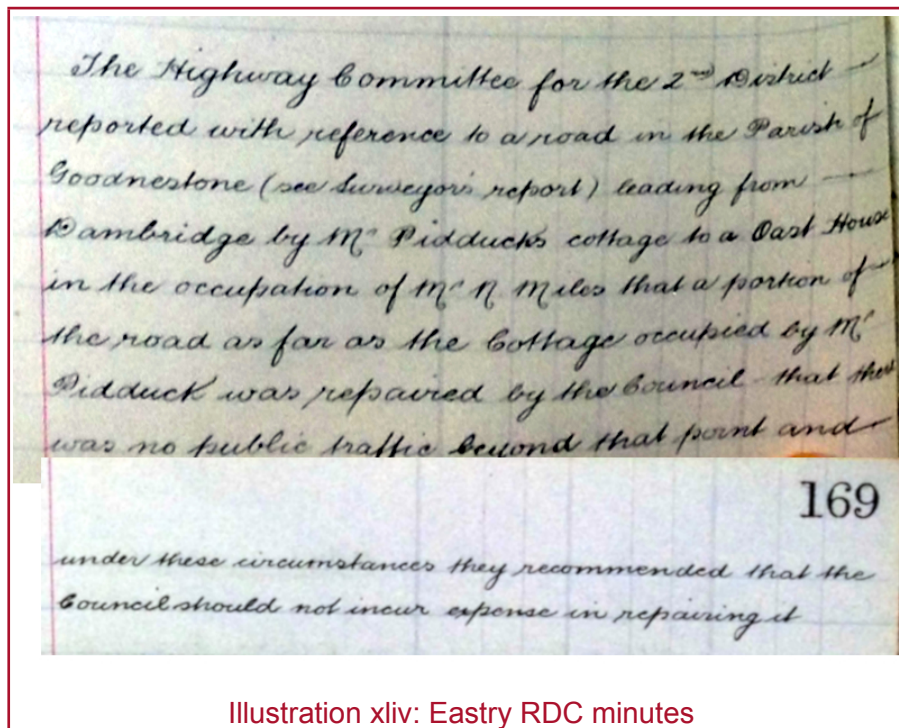 The Highway Committee for the 2nd District
reported with reference to a road in the Parish of
Goodnestone (see Surveyor's report) leading from
Dambridge by Mr Pidduck's cottage to a Oast House
in the occupation of Mr N Miles that a portion of
the road as far as the Cottage occupied by Mr
Pidduck was repaired by the Council - that there
was no public traffic beyond that point and
169
under these circumstances they recommended that the
Council should not incur expense in repairing it
Illustration xliv: Eastry RDC minutes